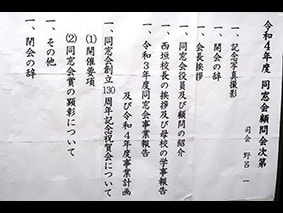 令和4年度 同窓会顧問会次第
司会 野呂 一
一、記念写真撮影
一、開会の辞
一、会長挨拶
一、同窓会役員及び顧問の紹介
一、西垣校長の挨拶及び母校の学事報告
一、令和3年度同窓会事業報告
及び令和4年度事業計画
一、同窓会創立130周年記念祝賀会について
(1) 開催要項
(2) 同窓会賞の顕彰について
一、その他
一、閉会の辞